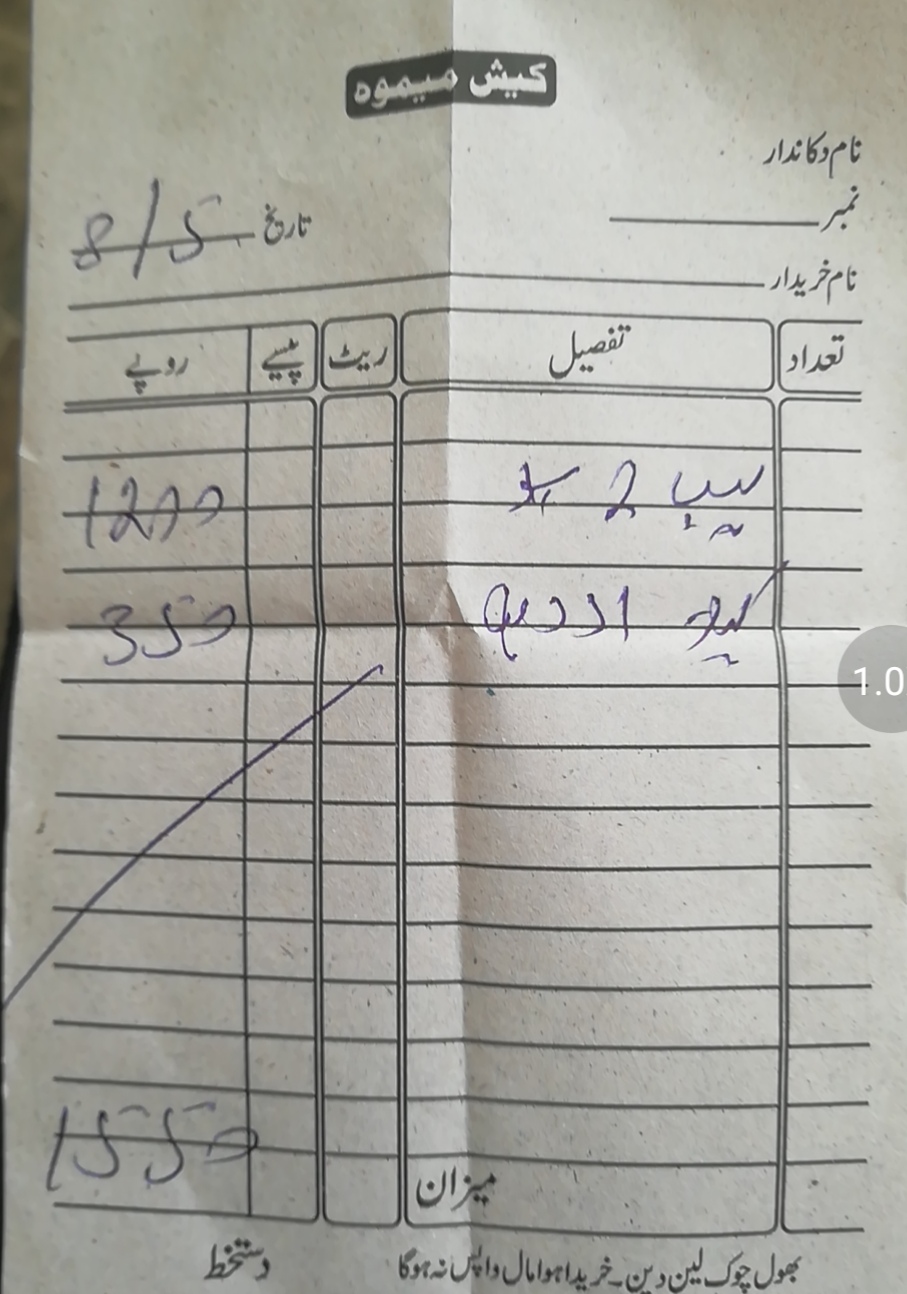 کیش میمو
نام دکاندار
نمبر
تاریخ 8/5
نام خریدار
تعداد تفصیل ریٹ پیسے روپے
سیب 2 1200
350
1550
میزان
بھول چوک لین دین۔ خریدا ہوا مال واپس نہ ہوگا دستخط
1.0